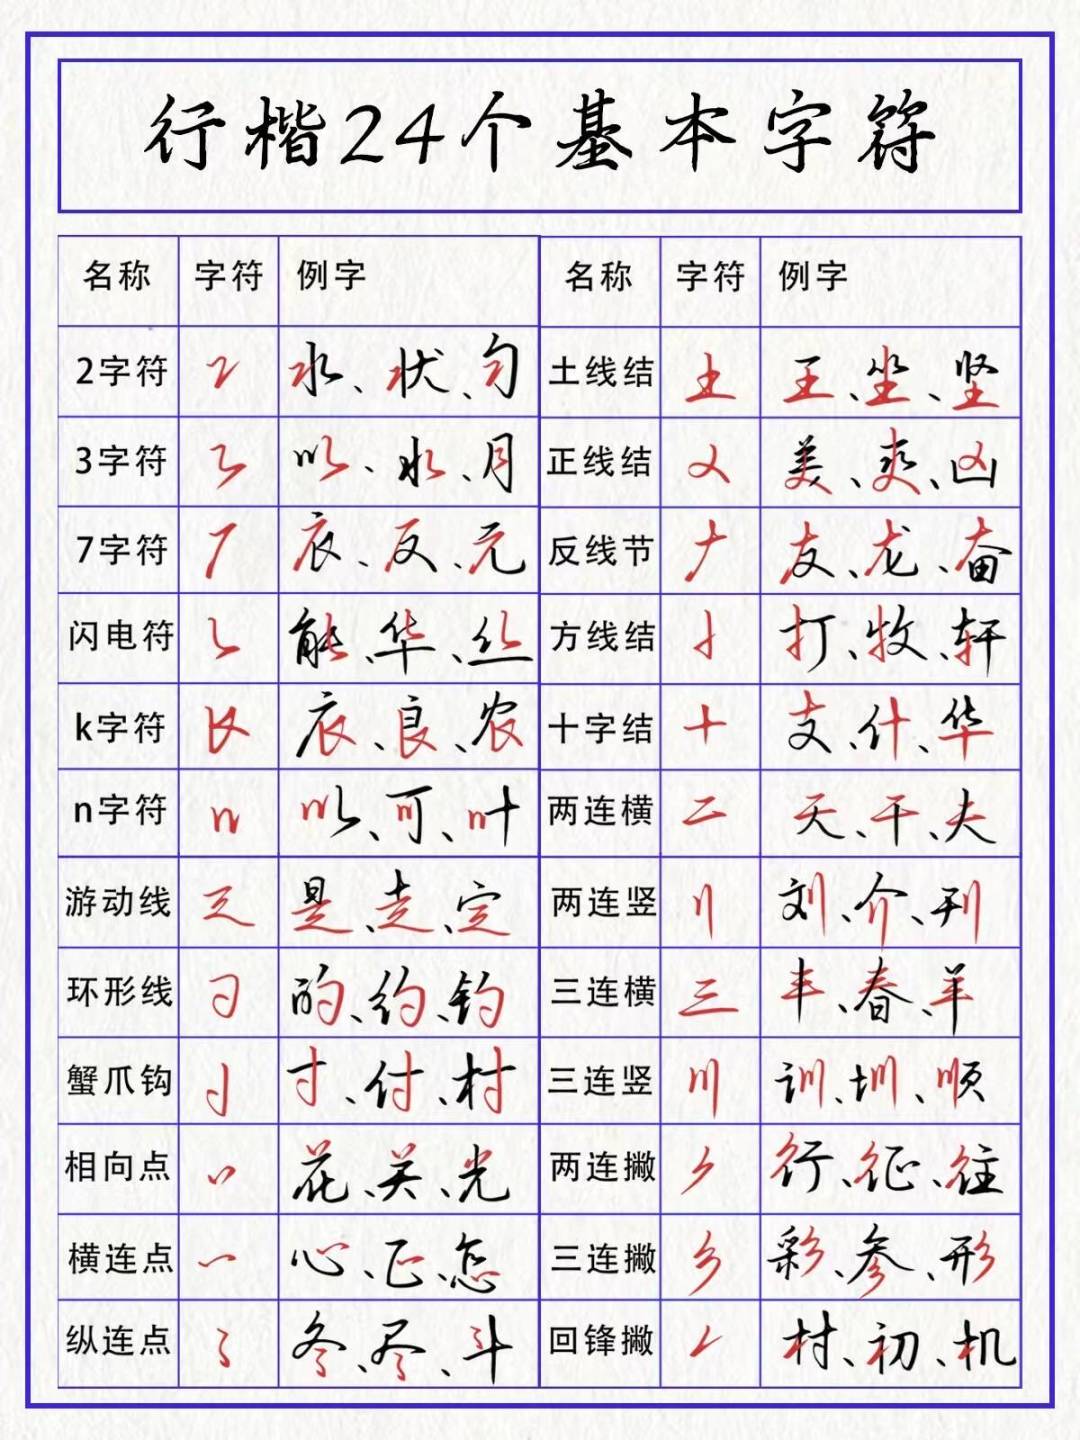 行楷24个基本字符
名称 字符 例字 名称 字符 例字
2字符 水、状、匀 土线结 土 王、坐、坚
3字符 以、水、月 正线结 美、爽、凶
7字符 衣、反、元 反线节 友、龙、奋
闪电符 能、华、丝 方线结 打、牧、轩
k字符 衣、良、农 十字结 十 支、什、华
n字符 n 以、可、叶 两连横 二 天、干、夫
游动线 是、走、定 两连竖 刘、介、刊
环形线 的、约、钓 三连横 三 丰、春、羊
蟹爪钩 寸、付、村 三连竖 训、圳、顺
相向点 花、关、光 两连撇 行、征、往
横连点 心、正、怎 三连撇 彡 彩、参、形
纵连点 冬、尽、斗 回锋撇 村、初、机